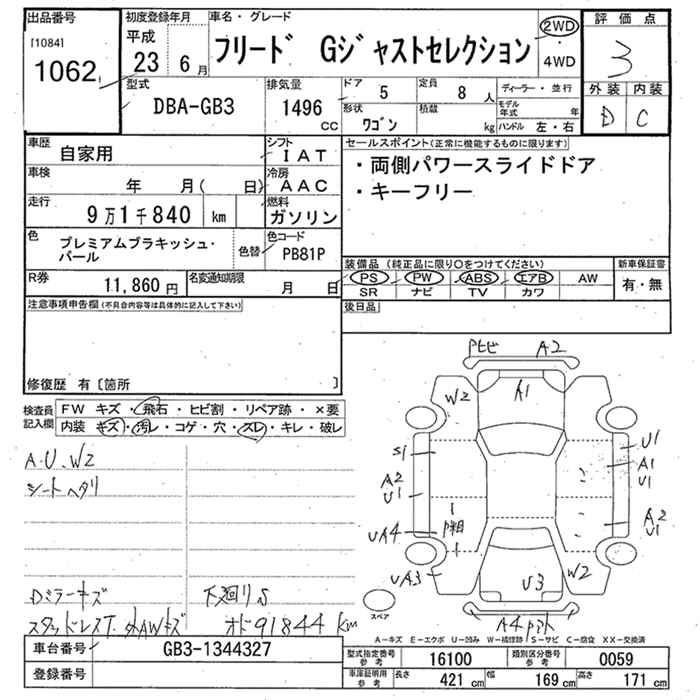 出品番号
[1084]
1062
初度登録年月
平成
23 6月
車名・グレード
フリード Gジャストセレクション
2WD
・
4WD
評価点
3
外装 内装
D C
型式
DBA-GB3
排気量
1496
CC
ドア
5
定員
8 人
形状
ワゴン
積載
kg
ディーラー・並行
モデル年式 年
ハンドル 左・右
車歴
自家用
シフト
IAT
車検
年 月( 日)
冷房
AAC
走行
9万1千840 km
燃料
ガソリン
色
プレミアムブラキッシュ・
パール
色替
色コード
PB81P
R券
11,860 円
名変通知期限
月 日
セールスポイント(正常に機能するものに限ります)
・両側パワースライドドア
・キーフリー
装備品(純正品に限り○をつけてください)
新車保証書
PS PW ABS エアB AW
SR ナビ TV カワ
有・無
後日品
注意事項申告欄(不具合内容等は具体的に記入して下さい)
修復歴 有〔箇所 〕
検査員
記入欄
FW キズ・飛石・ヒビ割・リペア跡・×要
内装 キズ・汚レ・コゲ・穴・スレ・キレ・破レ
A.U.W2
シートヘタリ
Dミラーキズ 下廻りS
スタッドレスT.外AWキズ オド91844km
ヒビ A2
W2 A1
S1 U1
A2 A1
U1 U1
凹 A2
UA4 U1
UA3 U3 W2
A4
スペア
A-キズ E-エクボ U-凹み W-補修跡 S-サビ C-腐食 XX-交換済
車台番号
GB3-1344327
登録番号
型式指定番号
参考
16100
類別区分番号
参考
0059
車庫証明用
参考
長さ
421 cm
幅
169 cm
高さ
171 cm